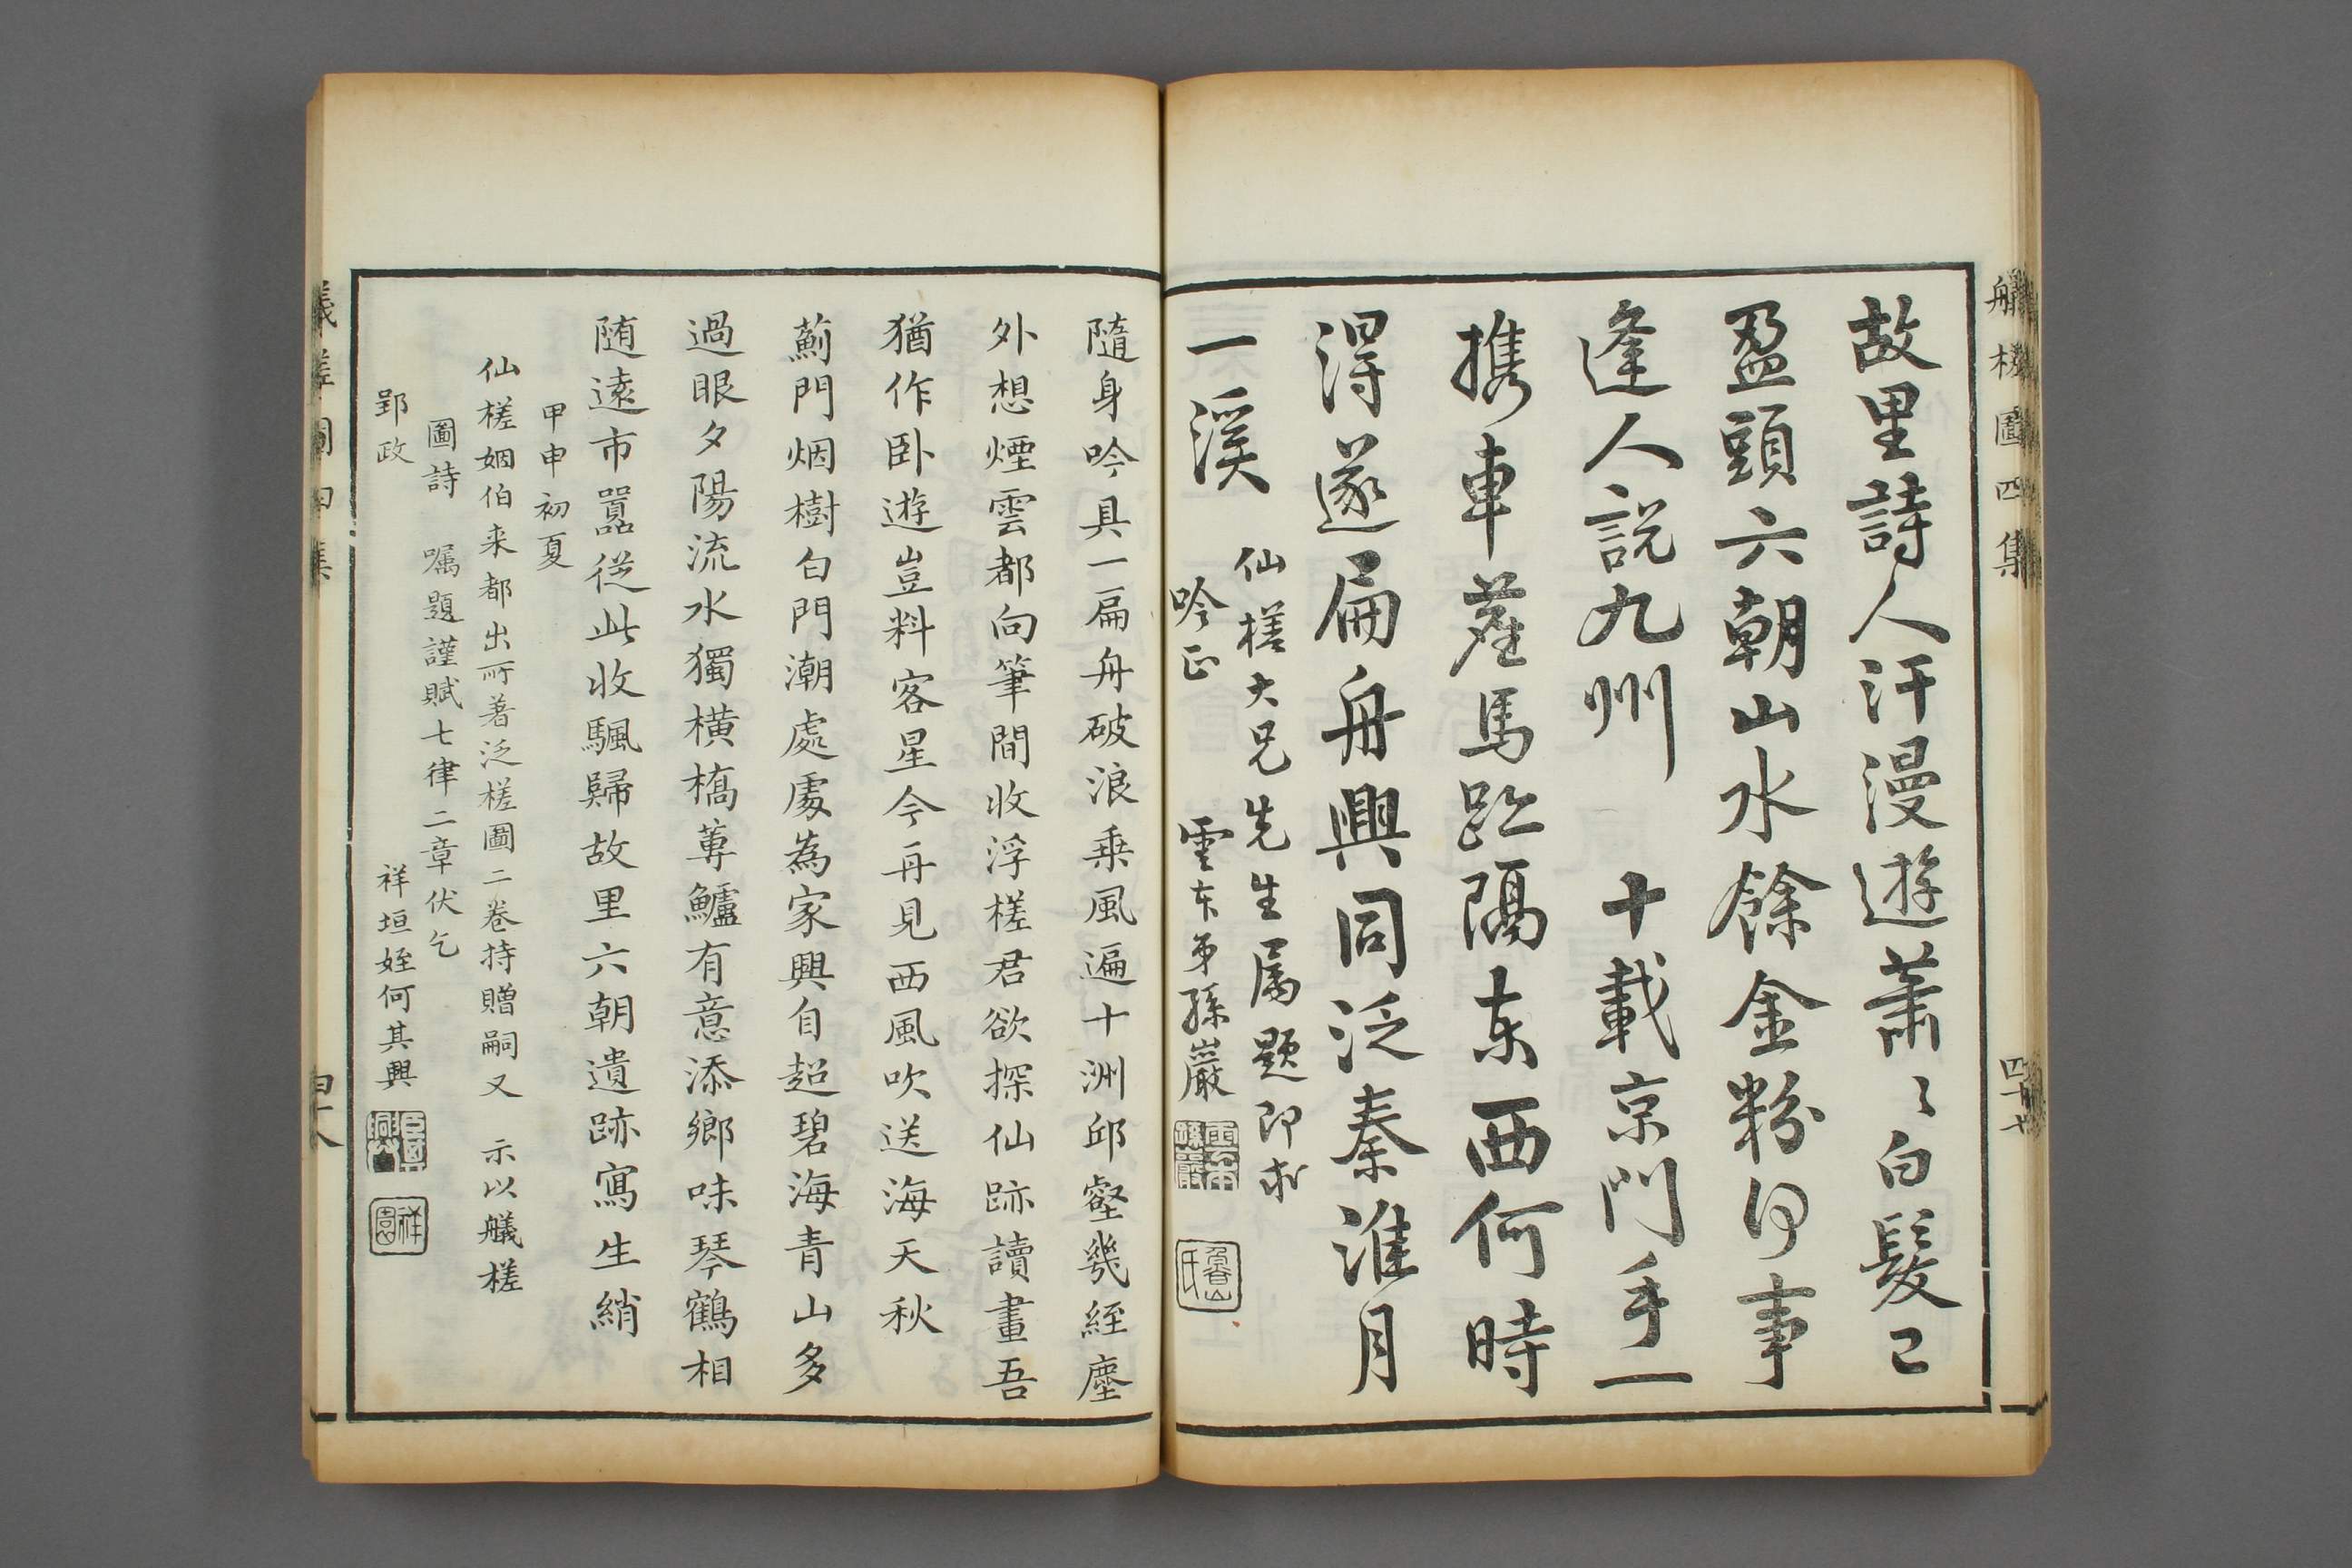 艤槎圖四集
四十七
故里詩人汗漫遊蕭〻白髮已
盈頭六朝山水餘金粉何事
逢人説九州　十載京門手一
携車塵馬跡隔东西何時
得遂扁舟興同泛秦淮月
一溪
仙槎大兄先生属題即求
吟正　雲东弟孫巖
隨身吟具一扁舟破浪乗風遍十洲邱壑幾經塵
外想煙雲都向筆間收浮槎君欲探仙跡讀畫吾
猶作卧遊豈料客星今再見西風吹送海天秋
薊門烟樹白門潮處處為家興自超碧海青山多
過眼夕陽流水獨横橋蓴鱸有意添鄉味琴鶴相
随遠市囂從此收颿歸故里六朝遺跡寫生綃
甲申初夏
仙槎姻伯来都出所著泛槎圖二巻持贈嗣又　示以艤槎
圖詩　嘱題謹賦七律二章伏乞
郢政　祥垣姪何其興
祥園
艤槎圖四集
四十八